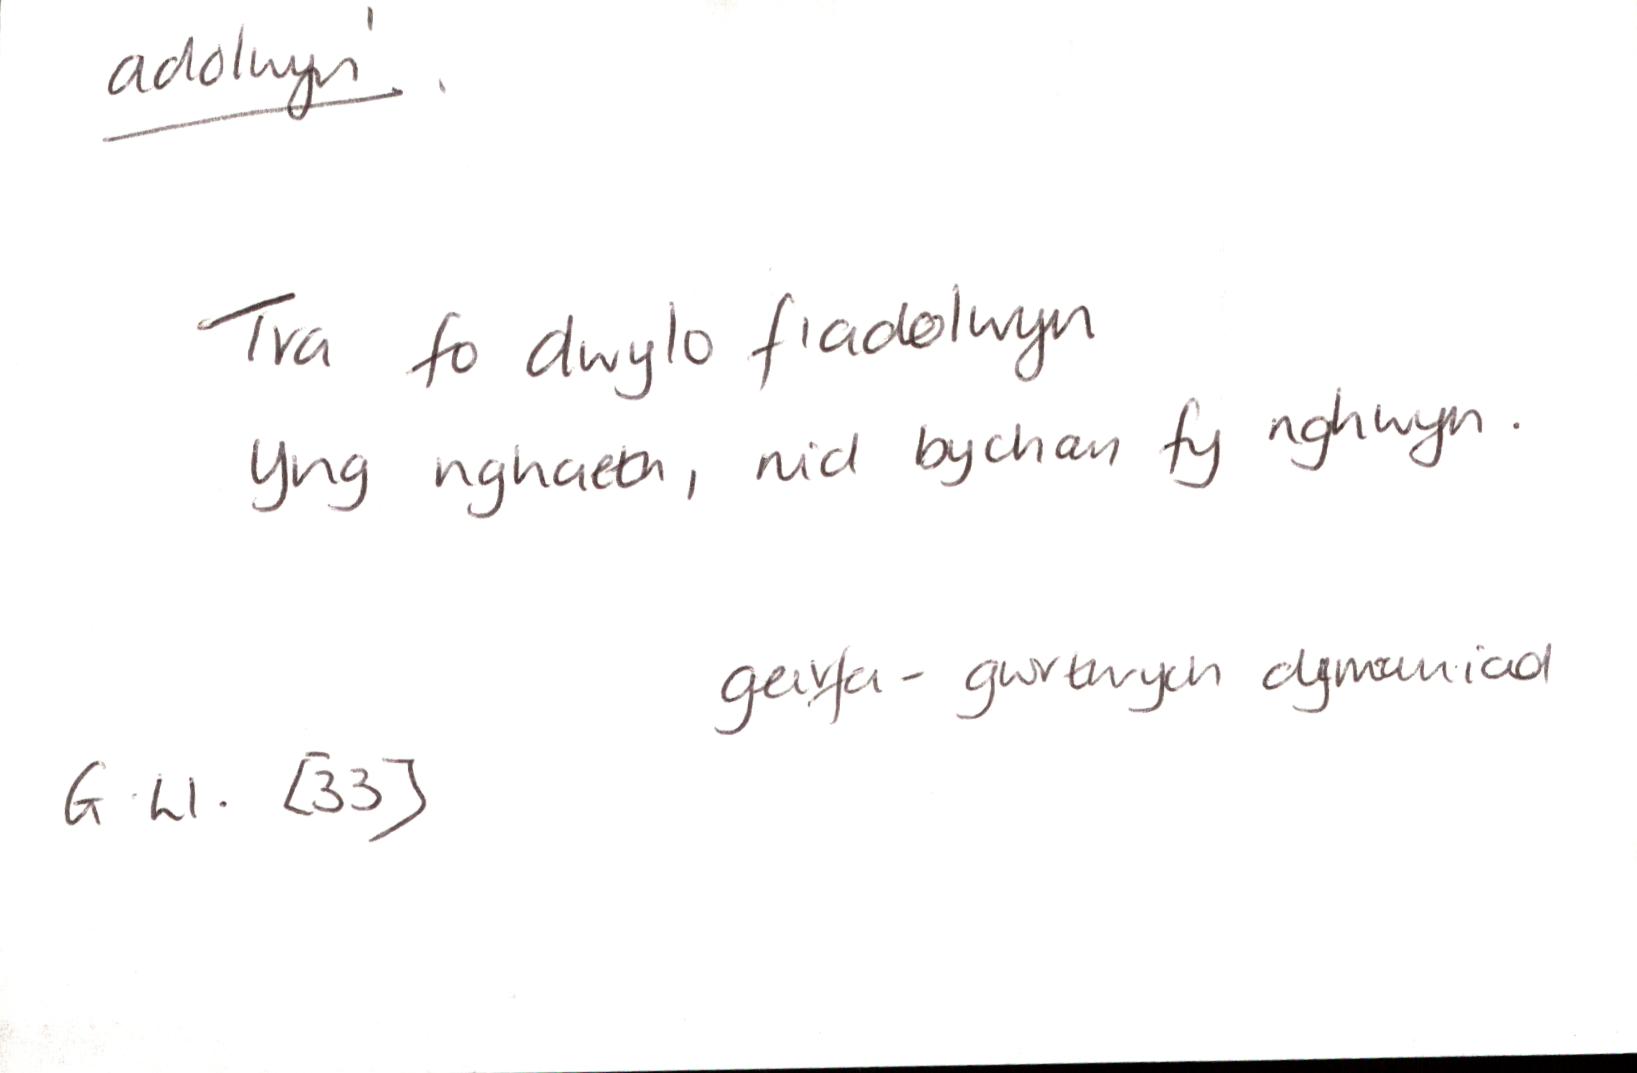 adolwyn'.
Tra fo dwylo f'iadolwyn
Yng nghaeth, nid bychan fy nghwyn.
geirfa - gwrthrych dymuniad
G. Ll. [33]